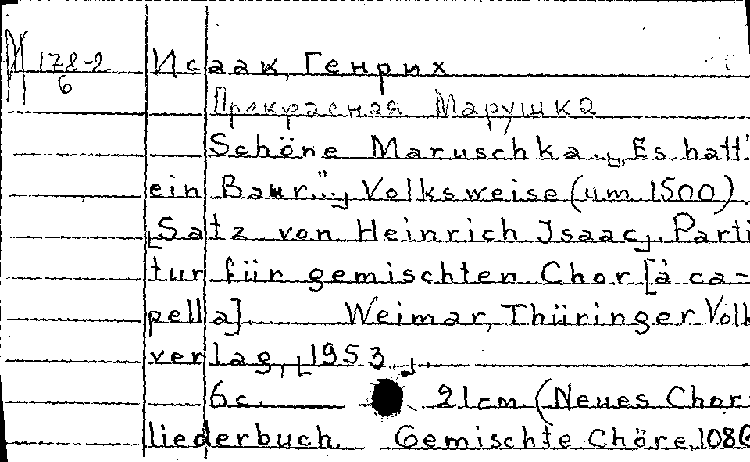 М 178-2
6
Исаак, Генрих
Прекрасная Марушка
Schöne Maruschka. „Es hatt'
ein Baur..." Volksweise (um 1500).
[Satz von Heinrich Isaac]. Parti
tur für gemischten Chor [à ca-
pella]. Weimar, Thüringer Volk
verlag, [1953].
6c. 21cm (Neues Chor-
liederbuch. Gemischte Chöre, 1086